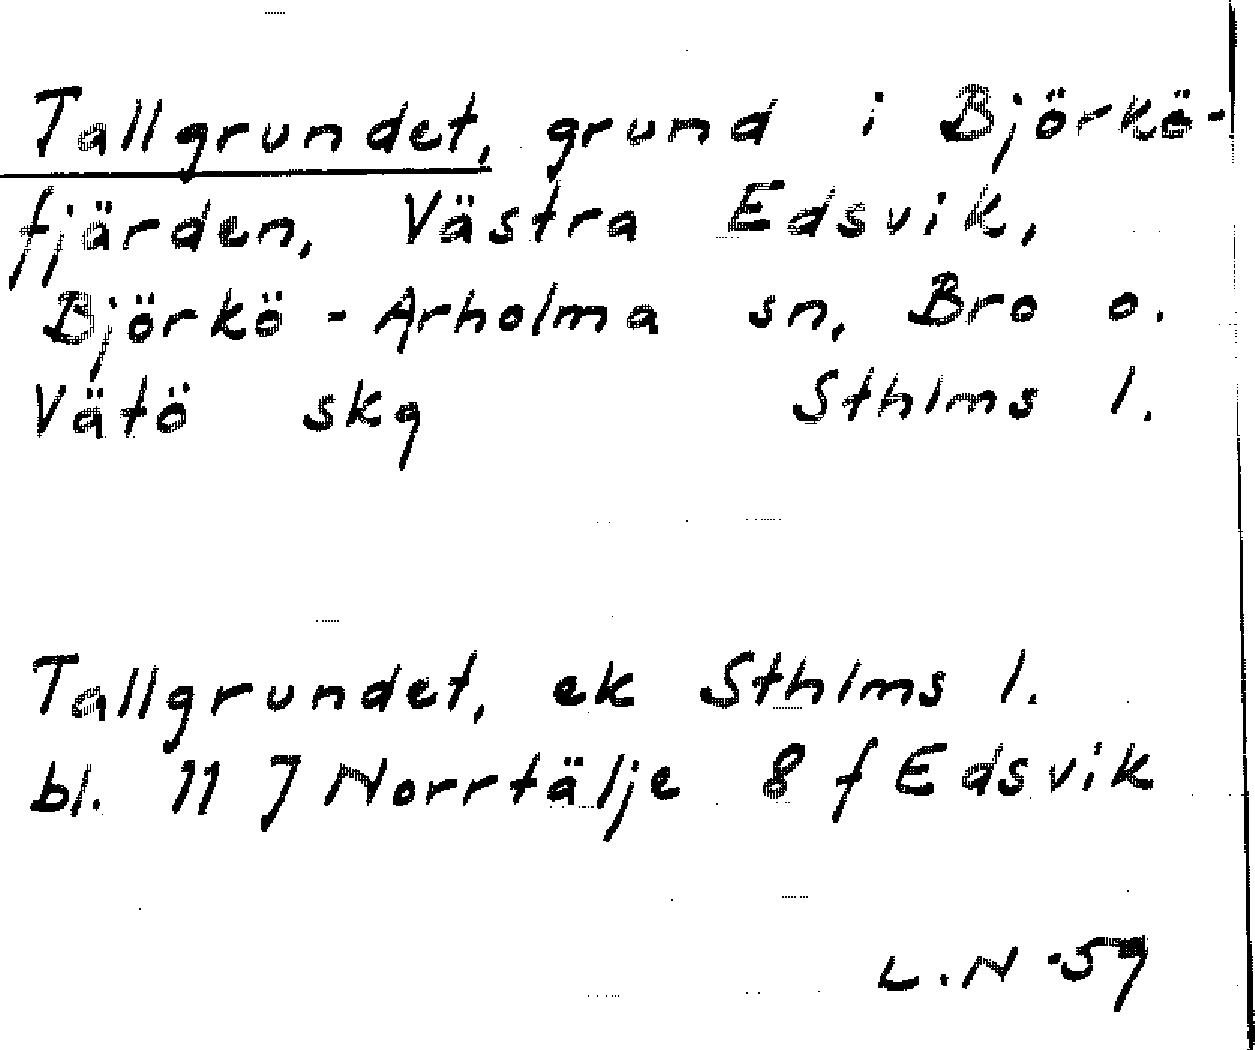 Tallgrundet, grund i Björkö-
fjärden, Västra Edsvik,
Björkö-Arholma sn, Bro o.
Vätö skg Sthlms l.
Tallgrundet, ek Sthlms l.
bl. 11 J Norrtälje 8 f Edsvik
L.N -59